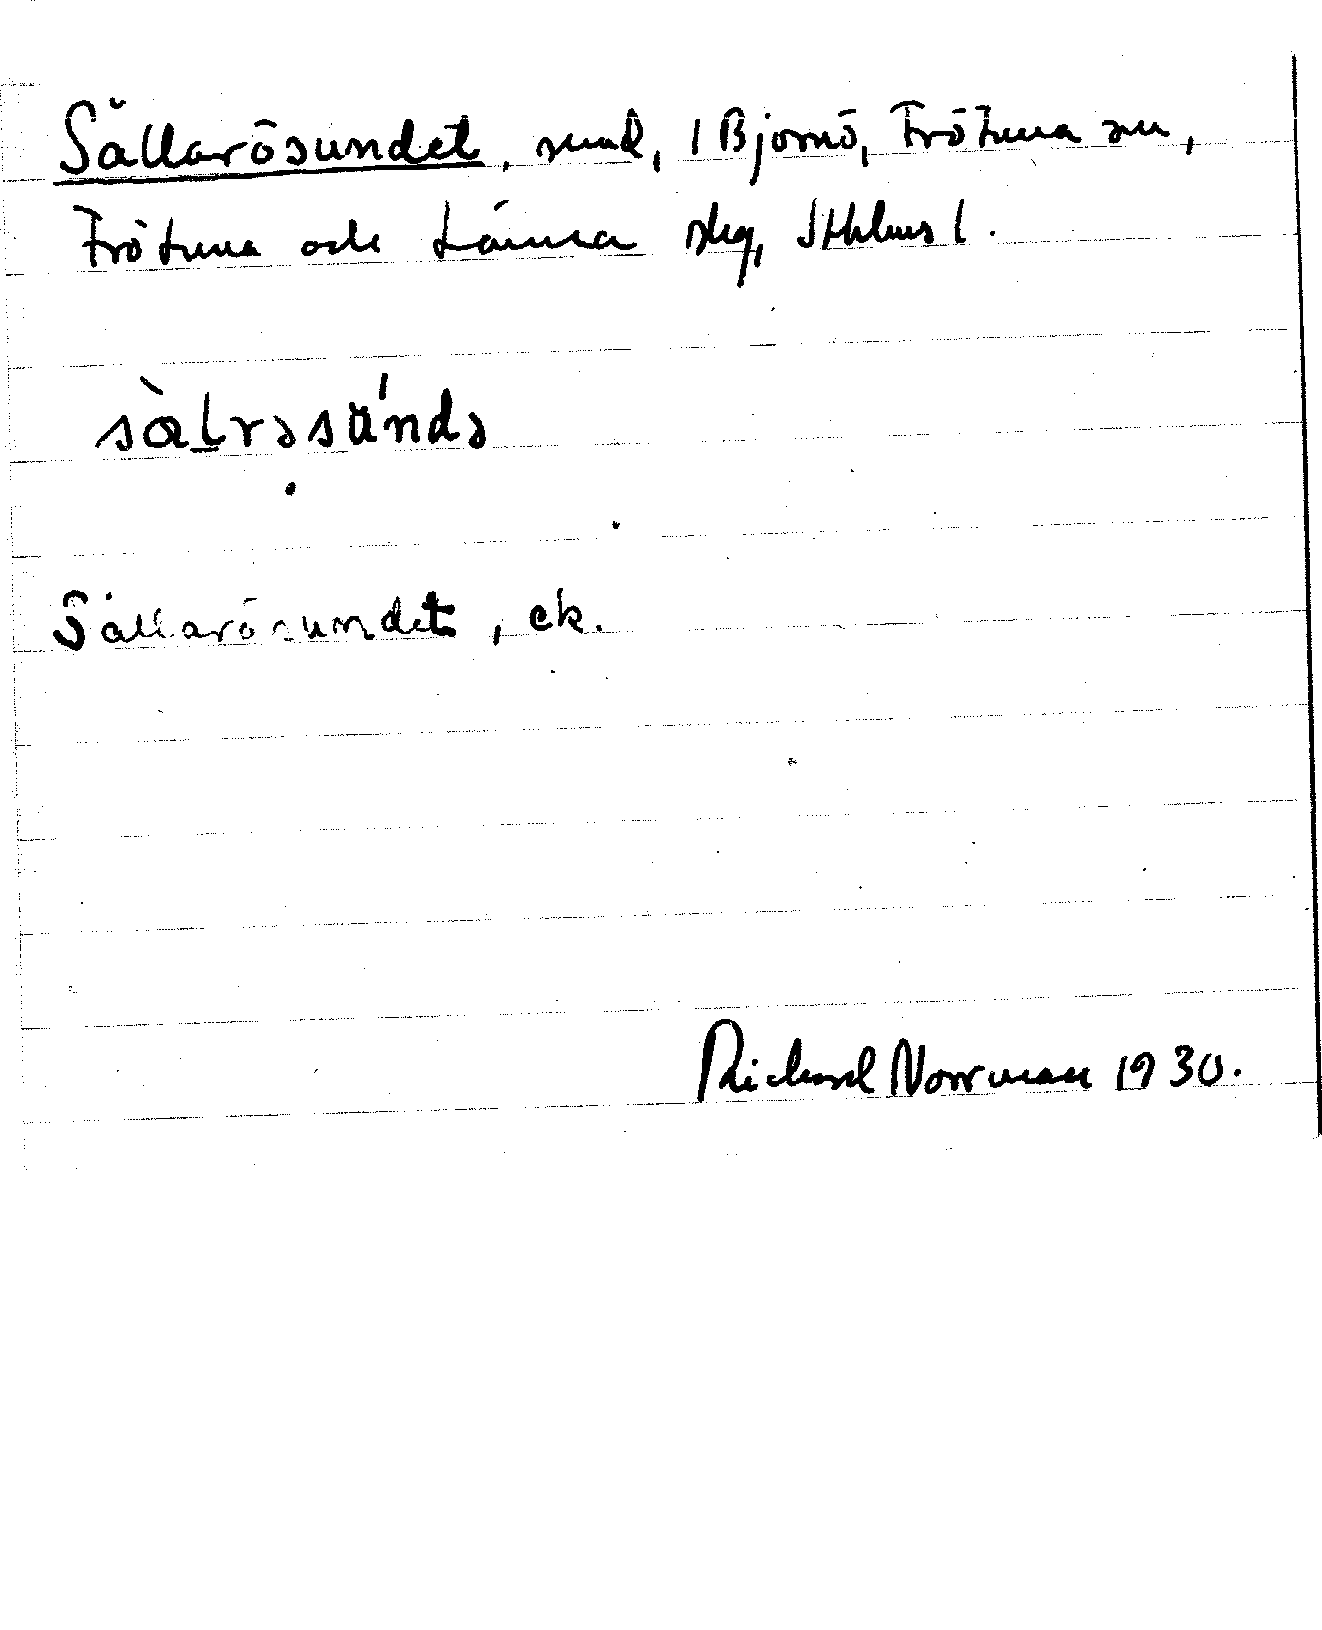 Sällarösundet, sund, 1 Björnö, Frötuna sn,
Frötuna och Länna skg, Sthlms l.
sàlrəsúndə
Sällarösundet, ek.
Richard Norrman 1930.